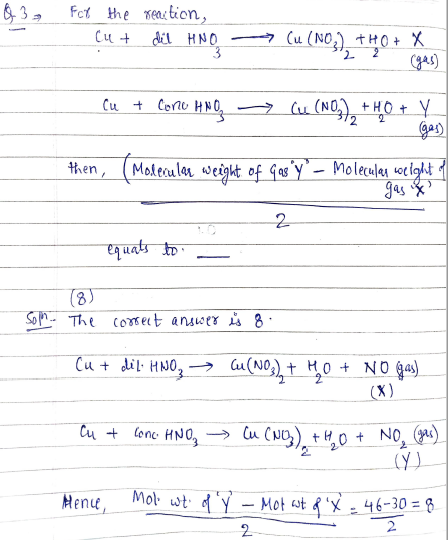 Q 3 ⇒ For the reaction,
Cu + dil HNO₃ ⟶ Cu(NO₃)₂ + H₂O + X
(gas)
Cu + Conc HNO₃ ⟶ Cu(NO₃)₂ + H₂O + Y
(gas)
then, (Molecular weight of gas "Y" – Molecular weight of
gas 'X')
2
equals to. __
(8)
Soln. The correct answer is 8.
Cu + dil. HNO₃ ⟶ Cu(NO₃)₂ + H₂O + NO (gas)
(X)
Cu + Conc HNO₃ ⟶ Cu(NO₃)₂ + H₂O + NO₂ (gas)
(Y)
Hence, Mol. wt. of 'Y' – Mol wt of 'X' = 46-30 = 8
2 2